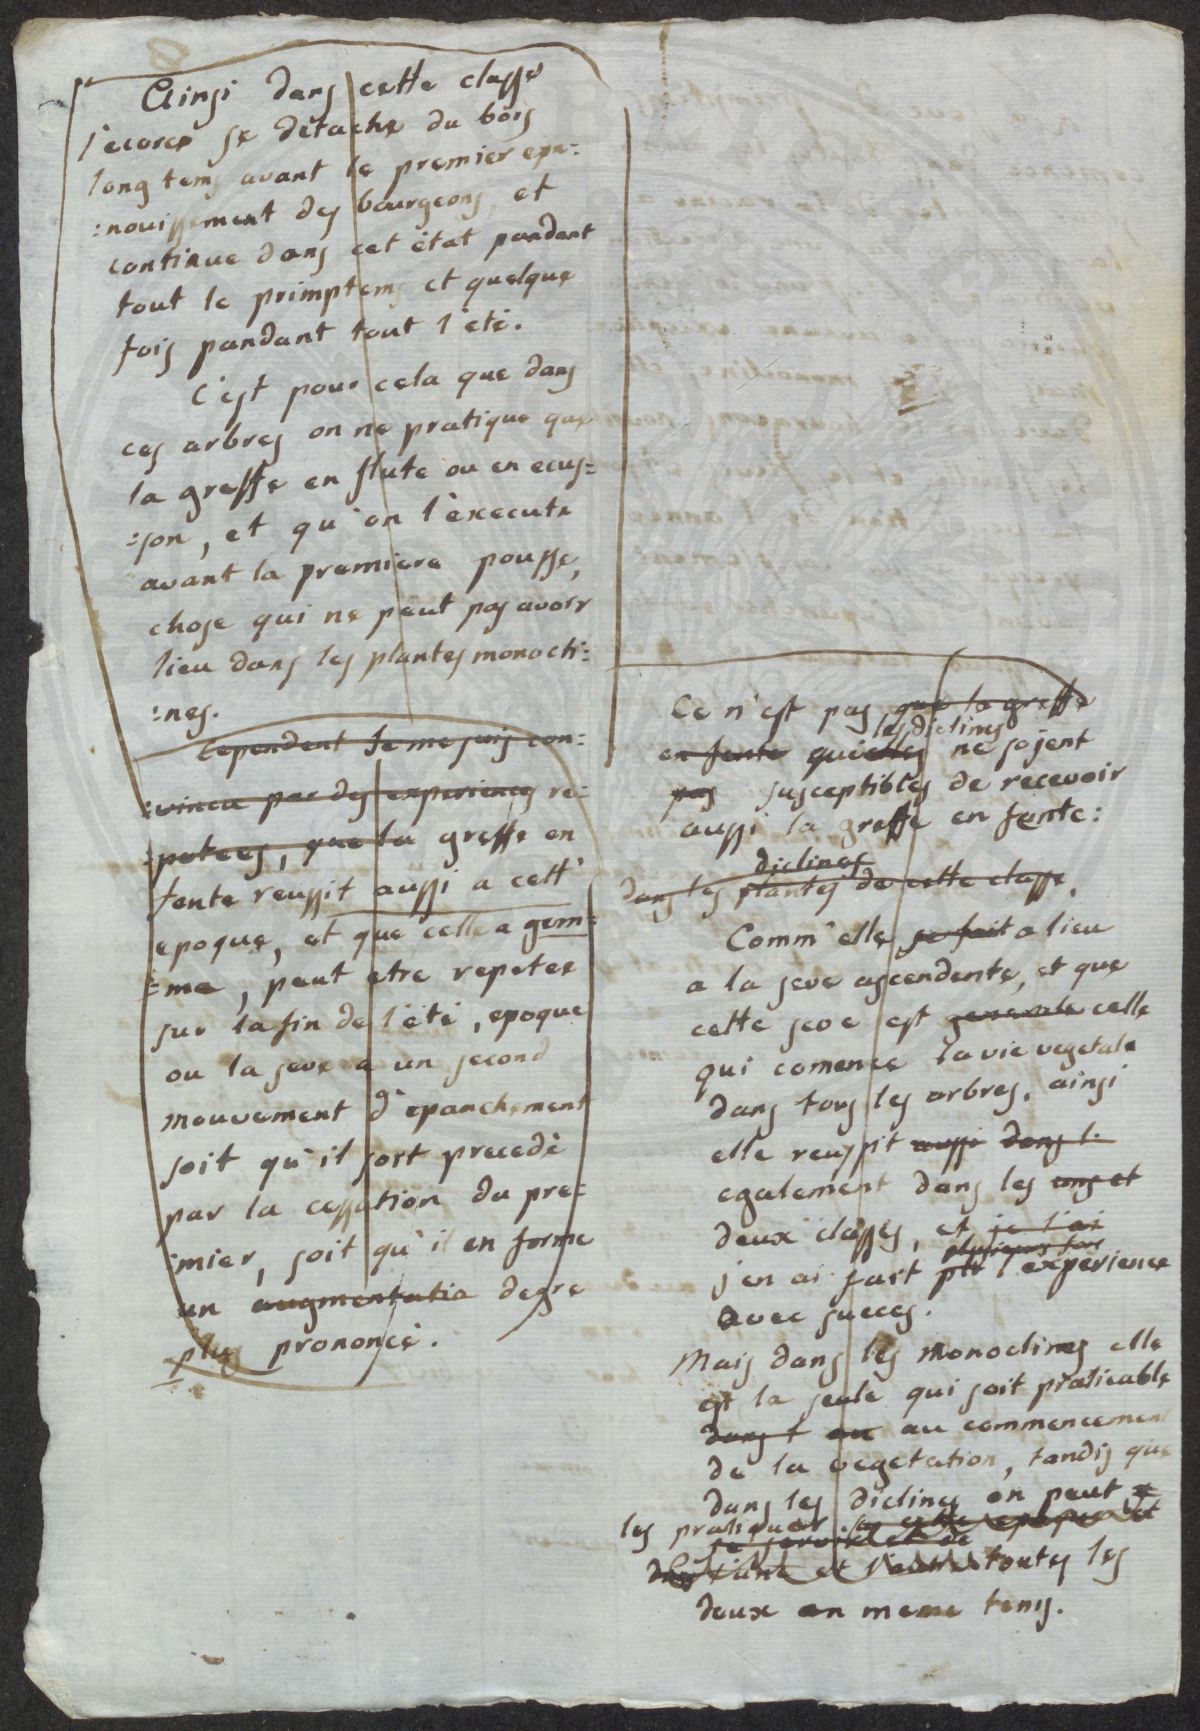 Ainsi dans cette classe
l'ecorce se dètache du bois
long tems avant le premier epa:
:nouissement des bourgeons, et
continue dans cet ètat pandant
tout le primptems et quelque
fois pandant tout l'eté.
C'est pour cela que dans
ces arbres on ne pratique que
la greffe en flute ou en ecus=
:son, et qu'on l'èxecute
avant la premiere pousse,
chose qui ne peut pas avoir
lieu dans les plantes monocli:
:nes.
Cependent je me suis con:
:vincu par des experiences re:
:petees, que la greffe en
fente reussit aussi a cett'
epoque, et que celle a gem=
=me, peut etre repetee
sur la fin de l'ètè, epoque
ou la seve a un second
mouvement d'epanchement
soit qu'il sort precedè
par la cessation du pre:
:mier, soit qu'il en forme
un augmentatio degre
plus prononcè.
Ce n'est pas que la greffe
les diclines
en fente qui elles ne sojent
pas susceptibles de recevoir
aussi la greffe en fente:
diclines
dans les plantes de cette classe.
Comm'elle se fait a lieu
a la seve ascendente, et que
cette seve est generale celle
qui comence la vie vegetale
dans tous les arbres, ainsi
elle reussit aussi dans l.
egalement dans les uns et
deux classes, et je l'ai
plusieurs fois
j'en ai fait l'experience
avec succes.
Mais dans les monoclines elle
est la seule qui soit praticable
dans l au au commencement
de la vegetation, tandis que
dans les diclines on peut
les pratiquer a cette epoque et
se servir et de
dans l'une et l'autre toutes les
deux en meme tems.